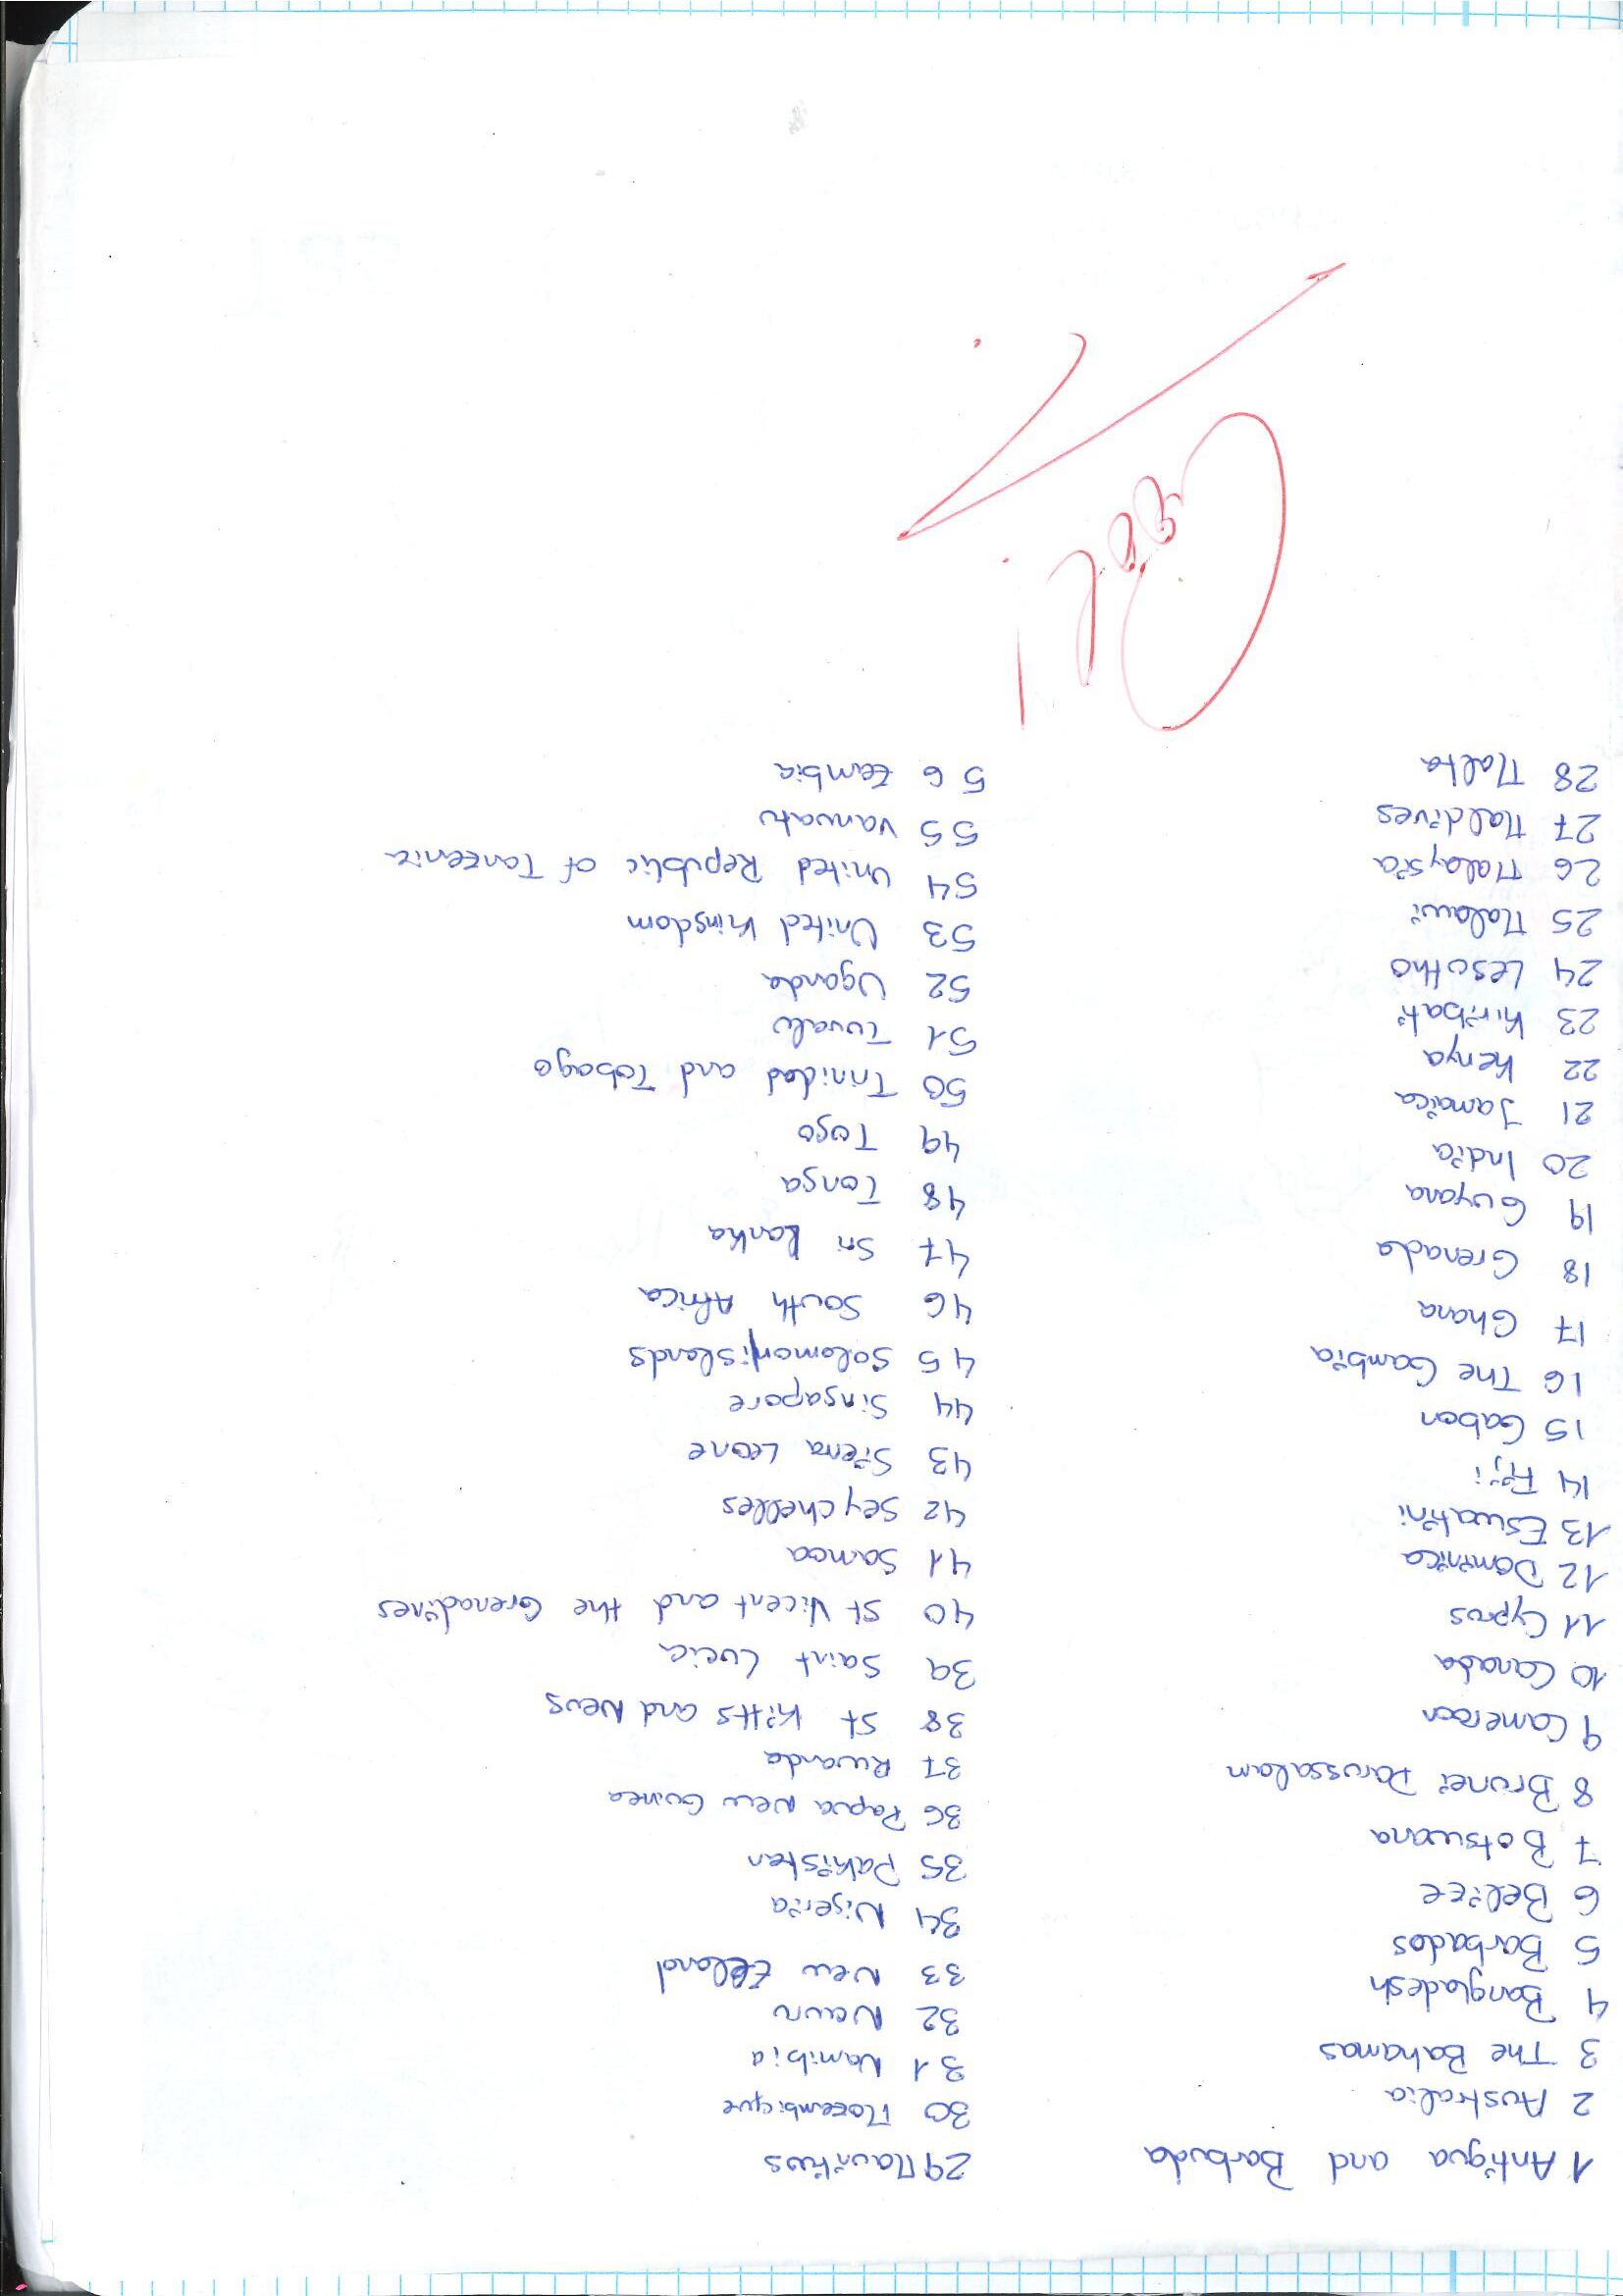 1 Antigua and Barbuda
2 Australia
3 The Bahamas
4 Bangladesh
5 Barbados
6 Belize
7 Botswana
8 Brunei Darussalam
9 Cameroon
10 Canada
11 Cyprus
12 Dominica
13 Eswatini
14 Fiji
15 Gabon
16 The Gambia
17 Ghana
18 Grenada
19 Guyana
20 India
21 Jamaica
22 Kenya
23 Kiribati
24 Lesotho
25 Malawi
26 Malaysia
27 Maldives
28 Malta
29 Mauritius
30 Mozambique
31 Namibia
32 Nauru
33 New Zeland
34 Nigeria
35 Pakistan
36 Papua New Guinea
37 Rwanda
38 St Kitts and Nevis
39 Saint Lucia
40 St Vicent and the Grenadines
41 Samoa
42 Seychelles
43 Sierra Leone
44 Singapore
45 Solomon islands
46 South Africa
47 Sri Lanka
48 Tonga
49 Togo
50 Trinidad and Tobago
51 Tuvalu
52 Uganda
53 United Kingdom
54 United Republic of Tanzania
55 Vanuatu
56 Zambia